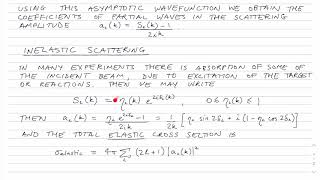 USING THIS ASYMPTOTIC WAVEFUNCTION WE OBTAIN THE
COEFFICIENTS OF PARTIAL WAVES IN THE SCATTERING
AMPLITUDE a_ℓ(k) = (S_ℓ(k) - 1) / 2ik
INELASTIC SCATTERING
IN MANY EXPERIMENTS THERE IS ABSORPTION OF SOME OF
THE INCIDENT BEAM, DUE TO EXCITATION OF THE TARGET
OR REACTIONS. THEN WE MAY WRITE
S_ℓ(k) = η_ℓ(k) e^{2iδ_ℓ(k)}, 0 ≤ η_ℓ(k) ≤ 1
THEN a_ℓ(k) = (η_ℓ e^{2iδ_ℓ} - 1) / 2ik = 1/2k [η_ℓ sin 2δ_ℓ + i(1 - η_ℓ cos 2δ_ℓ)]
AND THE TOTAL ELASTIC CROSS SECTION IS
σ_elastic = 4π Σ_ℓ (2ℓ+1) |a_ℓ(k)|²